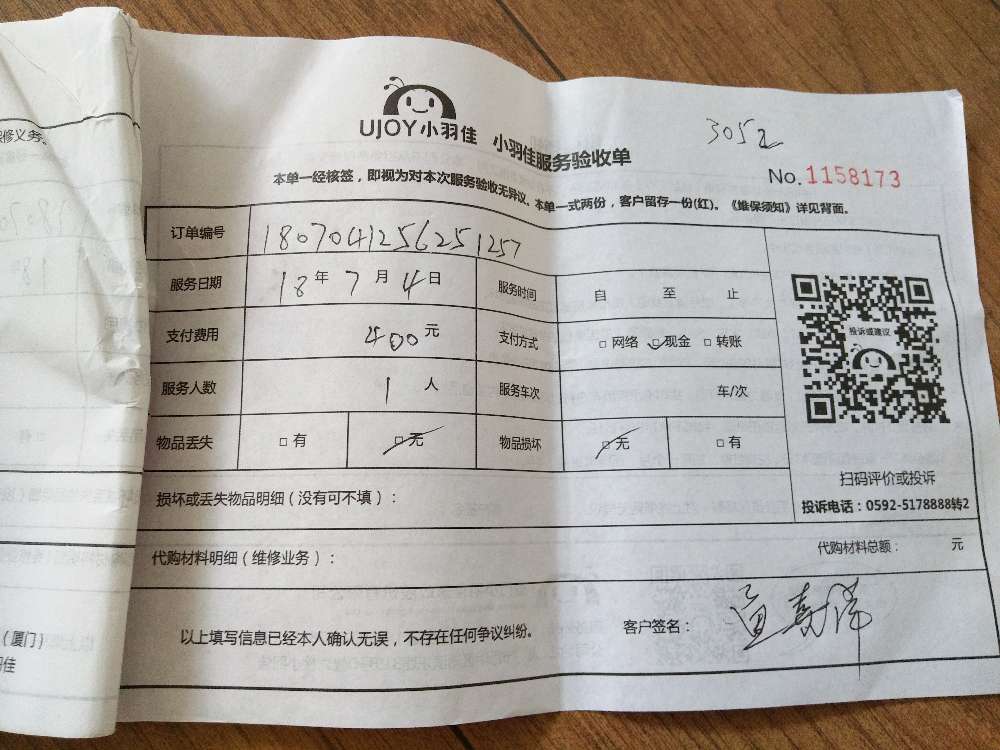 修义务。
UJOY小羽佳 小羽佳服务验收单
3052
No. 1158173
本单一经核签，即视为对本次服务验收无异议。本单一式两份，客户留存一份(红)。《维保须知》详见背面。
订单编号 180704125625 1257
服务日期 18 年 7 月 4 日 服务时间 自 至 止
支付费用 400 元 支付方式 □ 网络 □ 现金 □ 转账
投诉或建议
服务人数 1 人 服务车次 车/次
物品丢失 □ 有 □ 无 物品损坏 □ 无 □ 有
扫码评价或投诉
损坏或丢失物品明细（没有可不填）：
投诉电话：0592-5178888转2
代购材料明细（维修业务）：
代购材料总额： 元
以上填写信息已经本人确认无误，不存在任何争议纠纷。
客户签名：
（厦门）
羽佳